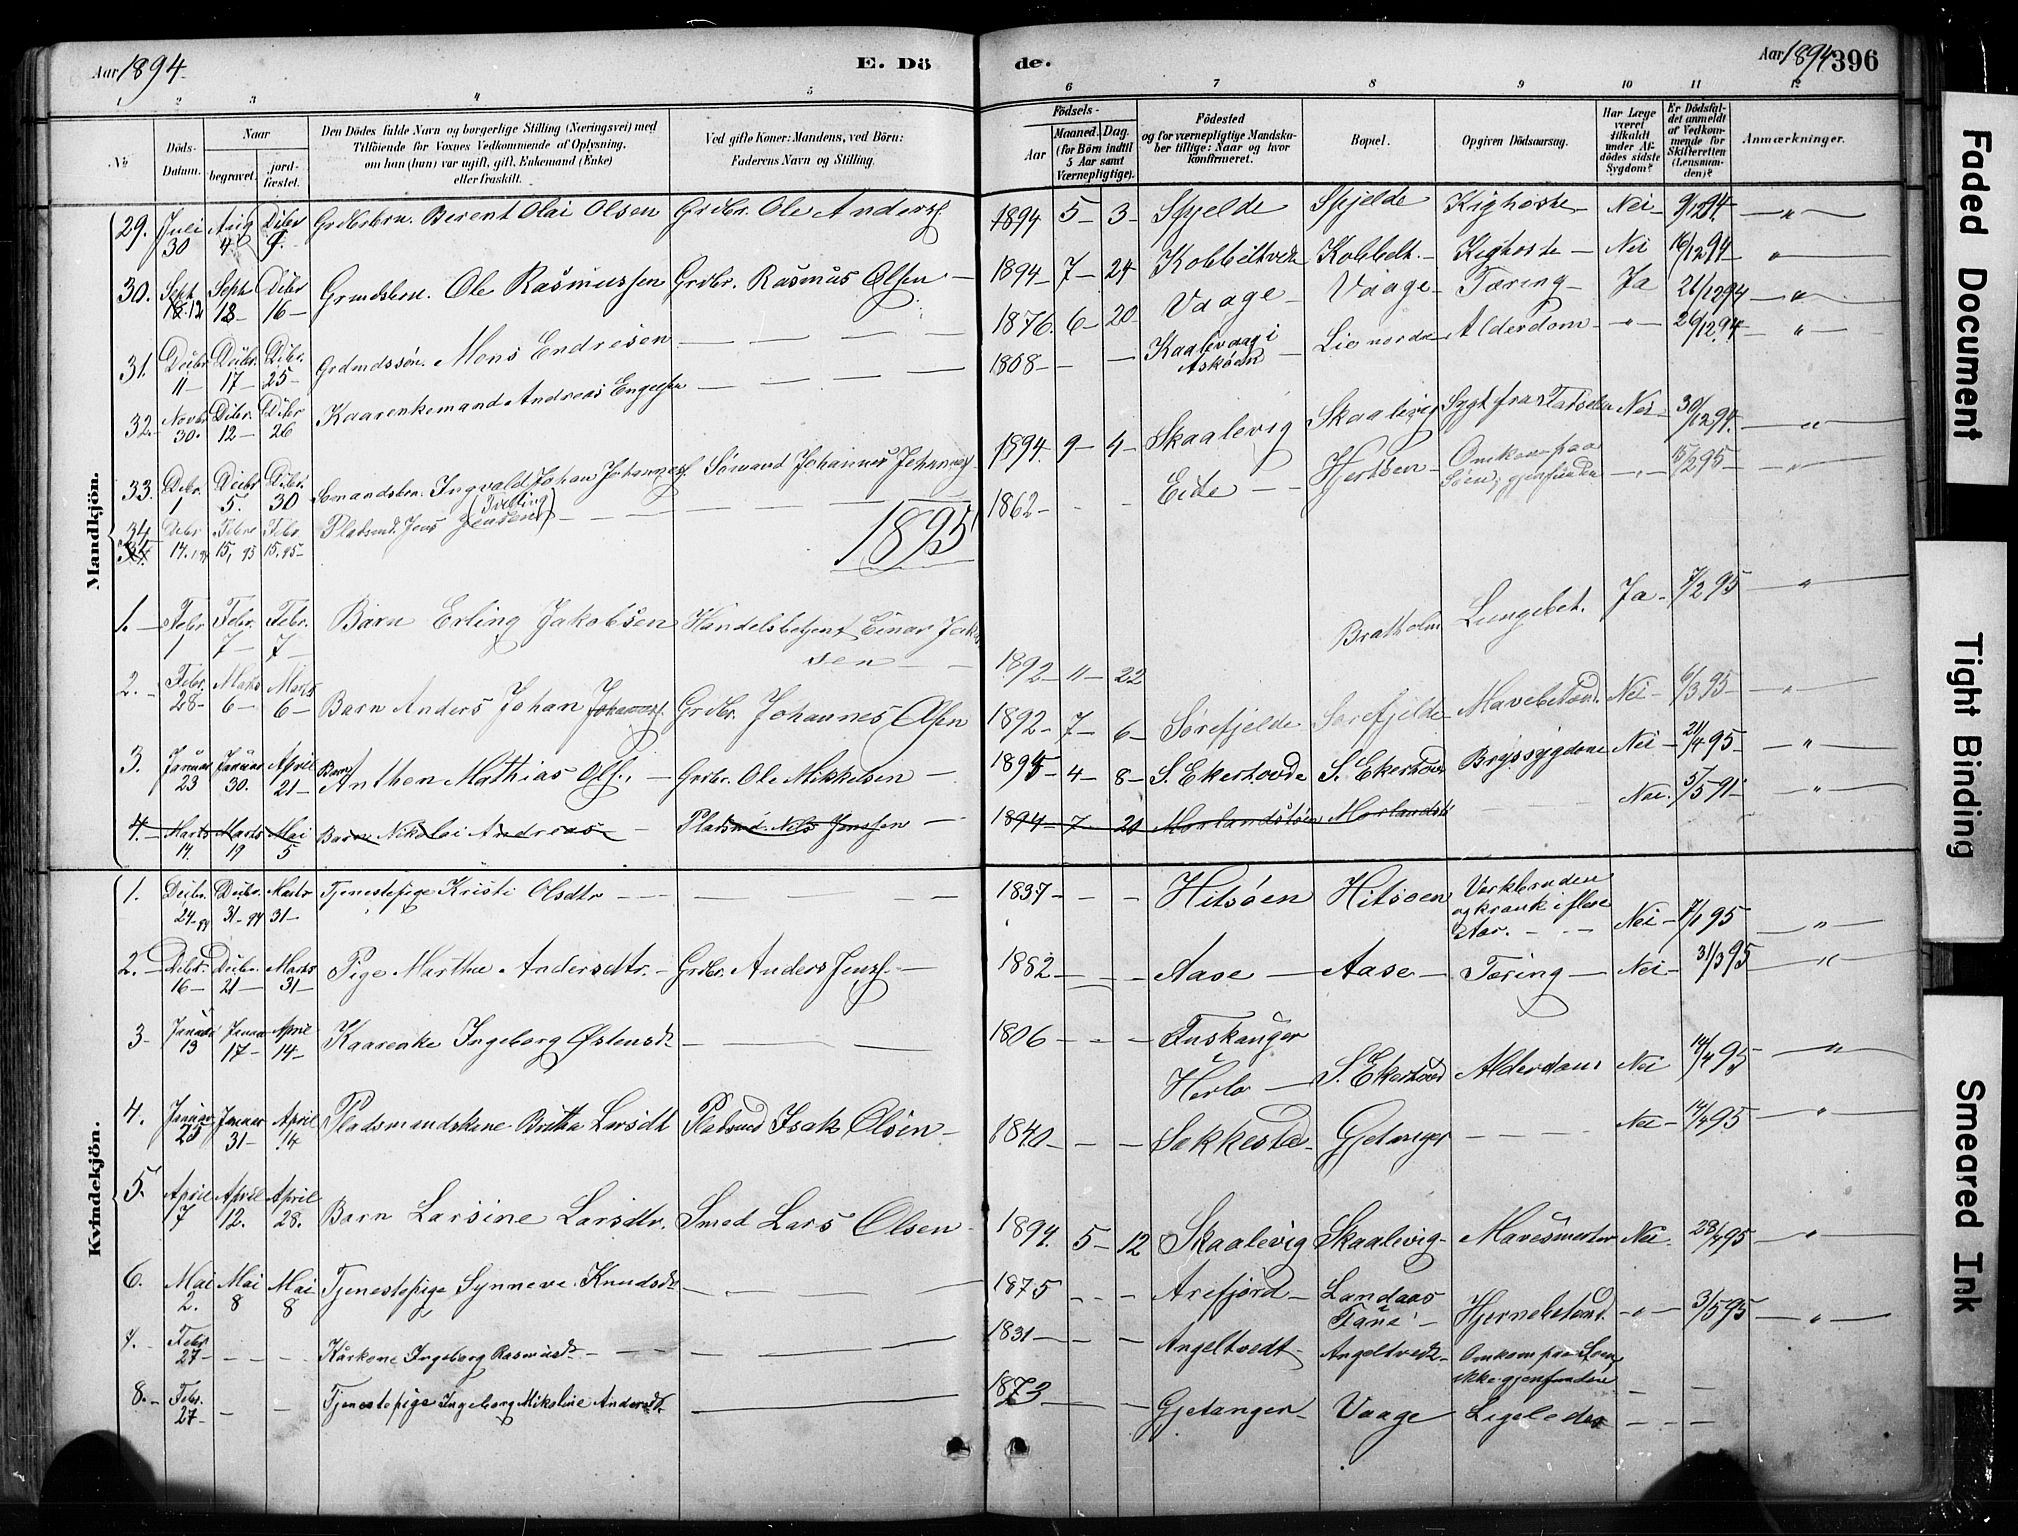 Aar 1894. E. Dö
1 2 3 4 5
No
Döds-Datum.
Naar
begravet.
jord-fæstet.
Den Dödes fulde Navn og borgerlige Stilling (Næringsvei) med
Tilföiende for Voxnes Vedkommende af Oplysning,
om han (hun) var ugift, gift, Enkemand (Enke)
eller fraskilt.
Ved gifte Koner: Mandens, ved Börn:
Faderens Navn og Stilling.
Mandkjön.
29. Juli 30 Aug 4 Dcbr 9. Grdbrbrn. Berent Olai Olsen Grdbr. Ole Anders
30. Sept 12 Sept 18 Dcbr 16 Grmdsbrn. Ole Rasmussen Grdbr. Rasmus Olsen
31. Decbr 11 Decbr 17 Dcbr. 25 Grdmdssön. Mons Endresen
32. Novbr 30. Dcbr. 12 Dcbr 26 Kaarenkemand Andreas Engelsen
33. Dcbr. 1 Dcbr 5. Dcbr. 30 Sömandsbrn. Ingvald Johan Johannes Sömand Johannes Johannes
(Tvilling)
34. Dcbr 14. Febr 15, 95 Febr 15. 95 Pladsmd. Jens Jensen
1895
1. Febr 1 Febr. 7 Febr. 7 Barn Erling Jakobsen Handelsbetjent Einar Jakobsen
2. Febr. 28 Marts 6 Marts 6 Barn Anders Johan Grdbr. Johannes Olsen
3. Januar 23 Januar 30. April 21 Barn Anthon Mathias Ols. Grdbr. Ole Mikkelsen
4. Marts 14. Marts 19 Mai 5 Barn Nikolai Andreas Pladsmd. Nils Jensen
Kvindekjön.
1. Decbr. 24 Decbr. 31-94 Marts 31 Tjenestepige Kristi Olsdtr
2. Dcbr. 16 Decbr. 21 Marts 31 Pige Marthe Andersdtr. Grdbr. Anders Jens
3 Januar 13 Januar 17 April 14 Kaarenke Ingeborg Østensd
4. Januar 25 Januar 31 April 14 Pladsmandskone Britha Larsdt Pladsmd Isak Olsen
5. April 7 April 12. April 28. Barn Larsine Larsdtr. Smed Lars Olsen
6. Mai 2. Mai 8 Mai 8 Tjenestepige Synneve Knudsd
7. Febr 27 Kårkone Ingeborg Rasmusd
8. Febr. 27 Tjenestepige Ingeborg Mikoline Andersdt
de. Aar 1894 396
6 7 8 9 10 11 12
Födsels-
Aar
Maaned. Dag.
(for Börn indtil
5 Aar samt
Værnepligtige).
Födested
og for værnepligtige Mandska-
ber tillige: Naar og hvor
konfirmeret.
Bopæl.
Opgiven Dödsaarsag.
Har Læge
været
tilkaldt
under Af-
dödes sidste
Sygdom?
Er Dödsfal-
det anmeldt
af Vedkom-
mende for
Skifteretten
(Lensman-
den)?
Anmærkninger.
1894 5 3 Spjelde Spjelde Kighoste Nei 9/12 94 "
1894 7 24 Kobbeltvedt Kobbelt. Kighoste Nei 16/12 94 "
1876 6 20 Vaage Vaage Tæring Ja 26/12 94 "
1808 Kaalevaag i Askøen Lie nordre Alderdom " 26/12 94 "
1894 9 4 Skaalevig Skaalevig Sygt fra Fødselen Nei 30/12 94. "
1862 Eide Hjertøen Omkom paa Søen, gjenfunden " 15/2 95 "
1892 11 22 Bratholm Lungebet. Ja 7/2 95 "
1892 7 6 Sørefjelde Sørefjelde Mavebetænd. Nei 6/3 95 "
1894 4 8 S. Ekerhovde S. Ekerhovd Brystsygdom Nei 21/4 95 "
1894 7 20 Morlandstøen Morlandstø Nei. 5/5 91 "
1837 Hitsøen Hitsøen Værkbruden og krank i flere Aar. Nei 1/1 95 "
1882 Aase Aase Tæring Nei 31/3 95 "
1806 Fuskanger Herlø S. Ekerhovd Alderdom Nei 14/4 95 "
1840 Sekkestad Gjetanger Nei 14/4 95 "
1894. 5 12 Skaalevig Skaalevig Nei 28/4 95 "
1875 Arefjord Landaas Fane Hjernebetænd. " 3/5 95 "
1831 Angeltvedt Angeltvedt Omkom paa Søen ikke gjenfunden
1873 Gjetanger Vaage Ligeledes
Faded Document
Tight Binding
Smeared Ink